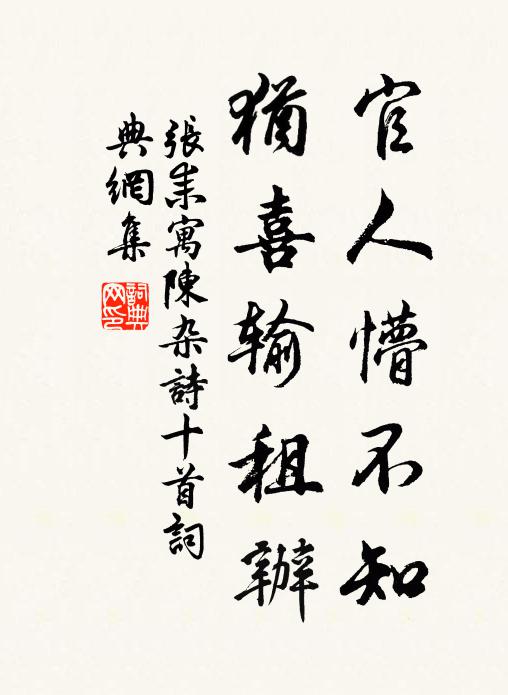 官人懵不知
猶喜輸租辦
張耒寓陳杂詩十首詞
典網集
詞典
网印